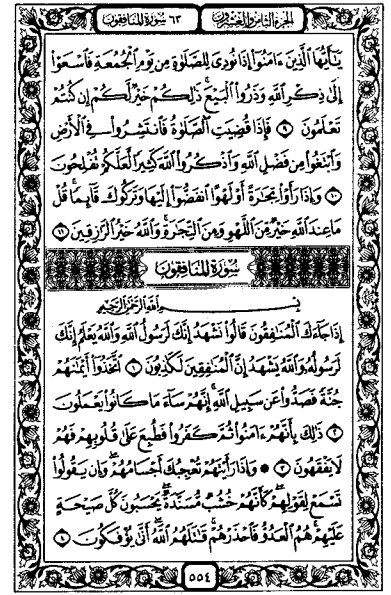 الجزء الثامن والعشرون
٦٣ سورة المنافقون
يَٰٓأَيُّهَا ٱلَّذِينَ ءَامَنُوٓا۟ إِذَا نُودِىَ لِلصَّلَوٰةِ مِن يَوْمِ ٱلْجُمُعَةِ فَٱسْعَوْا۟
إِلَىٰ ذِكْرِ ٱللَّهِ وَذَرُوا۟ ٱلْبَيْعَ ۚ ذَٰلِكُمْ خَيْرٌ لَّكُمْ إِن كُنتُمْ
تَعْلَمُونَ ٩ فَإِذَا قُضِيَتِ ٱلصَّلَوٰةُ فَٱنتَشِرُوا۟ فِى ٱلْأَرْضِ
وَٱبْتَغُوا۟ مِن فَضْلِ ٱللَّهِ وَٱذْكُرُوا۟ ٱللَّهَ كَثِيرًا لَّعَلَّكُمْ تُفْلِحُونَ
١٠ وَإِذَا رَأَوْا۟ تِجَٰرَةً أَوْ لَهْوًا ٱنفَضُّوٓا۟ إِلَيْهَا وَتَرَكُوكَ قَآئِمًا ۚ قُلْ
مَا عِندَ ٱللَّهِ خَيْرٌ مِّنَ ٱللَّهْوِ وَمِنَ ٱلتِّجَٰرَةِ ۚ وَٱللَّهُ خَيْرُ ٱلرَّٰزِقِينَ ١١
سورة المنافقون
بِسْمِ ٱللَّهِ ٱلرَّحْمَٰنِ ٱلرَّحِيمِ
إِذَا جَآءَكَ ٱلْمُنَٰفِقُونَ قَالُوا۟ نَشْهَدُ إِنَّكَ لَرَسُولُ ٱللَّهِ ۗ وَٱللَّهُ يَعْلَمُ إِنَّكَ
لَرَسُولُهُۥ وَٱللَّهُ يَشْهَدُ إِنَّ ٱلْمُنَٰفِقِينَ لَكَٰذِبُونَ ١ ٱتَّخَذُوٓا۟ أَيْمَٰنَهُمْ
جُنَّةً فَصَدُّوا۟ عَن سَبِيلِ ٱللَّهِ ۚ إِنَّهُمْ سَآءَ مَا كَانُوا۟ يَعْمَلُونَ
٢ ذَٰلِكَ بِأَنَّهُمْ ءَامَنُوا۟ ثُمَّ كَفَرُوا۟ فَطُبِعَ عَلَىٰ قُلُوبِهِمْ فَهُمْ
لَا يَفْقَهُونَ ٣ ۞ وَإِذَا رَأَيْتَهُمْ تُعْجِبُكَ أَجْسَامُهُمْ ۖ وَإِن يَقُولُوا۟
تَسْمَعْ لِقَوْلِهِمْ ۖ كَأَنَّهُمْ خُشُبٌ مُّسَنَّدَةٌ ۖ يَحْسَبُونَ كُلَّ صَيْحَةٍ
عَلَيْهِمْ ۚ هُمُ ٱلْعَدُوُّ فَٱحْذَرْهُمْ ۚ قَٰتَلَهُمُ ٱللَّهُ ۖ أَنَّىٰ يُؤْفَكُونَ ٤
٥٥٤